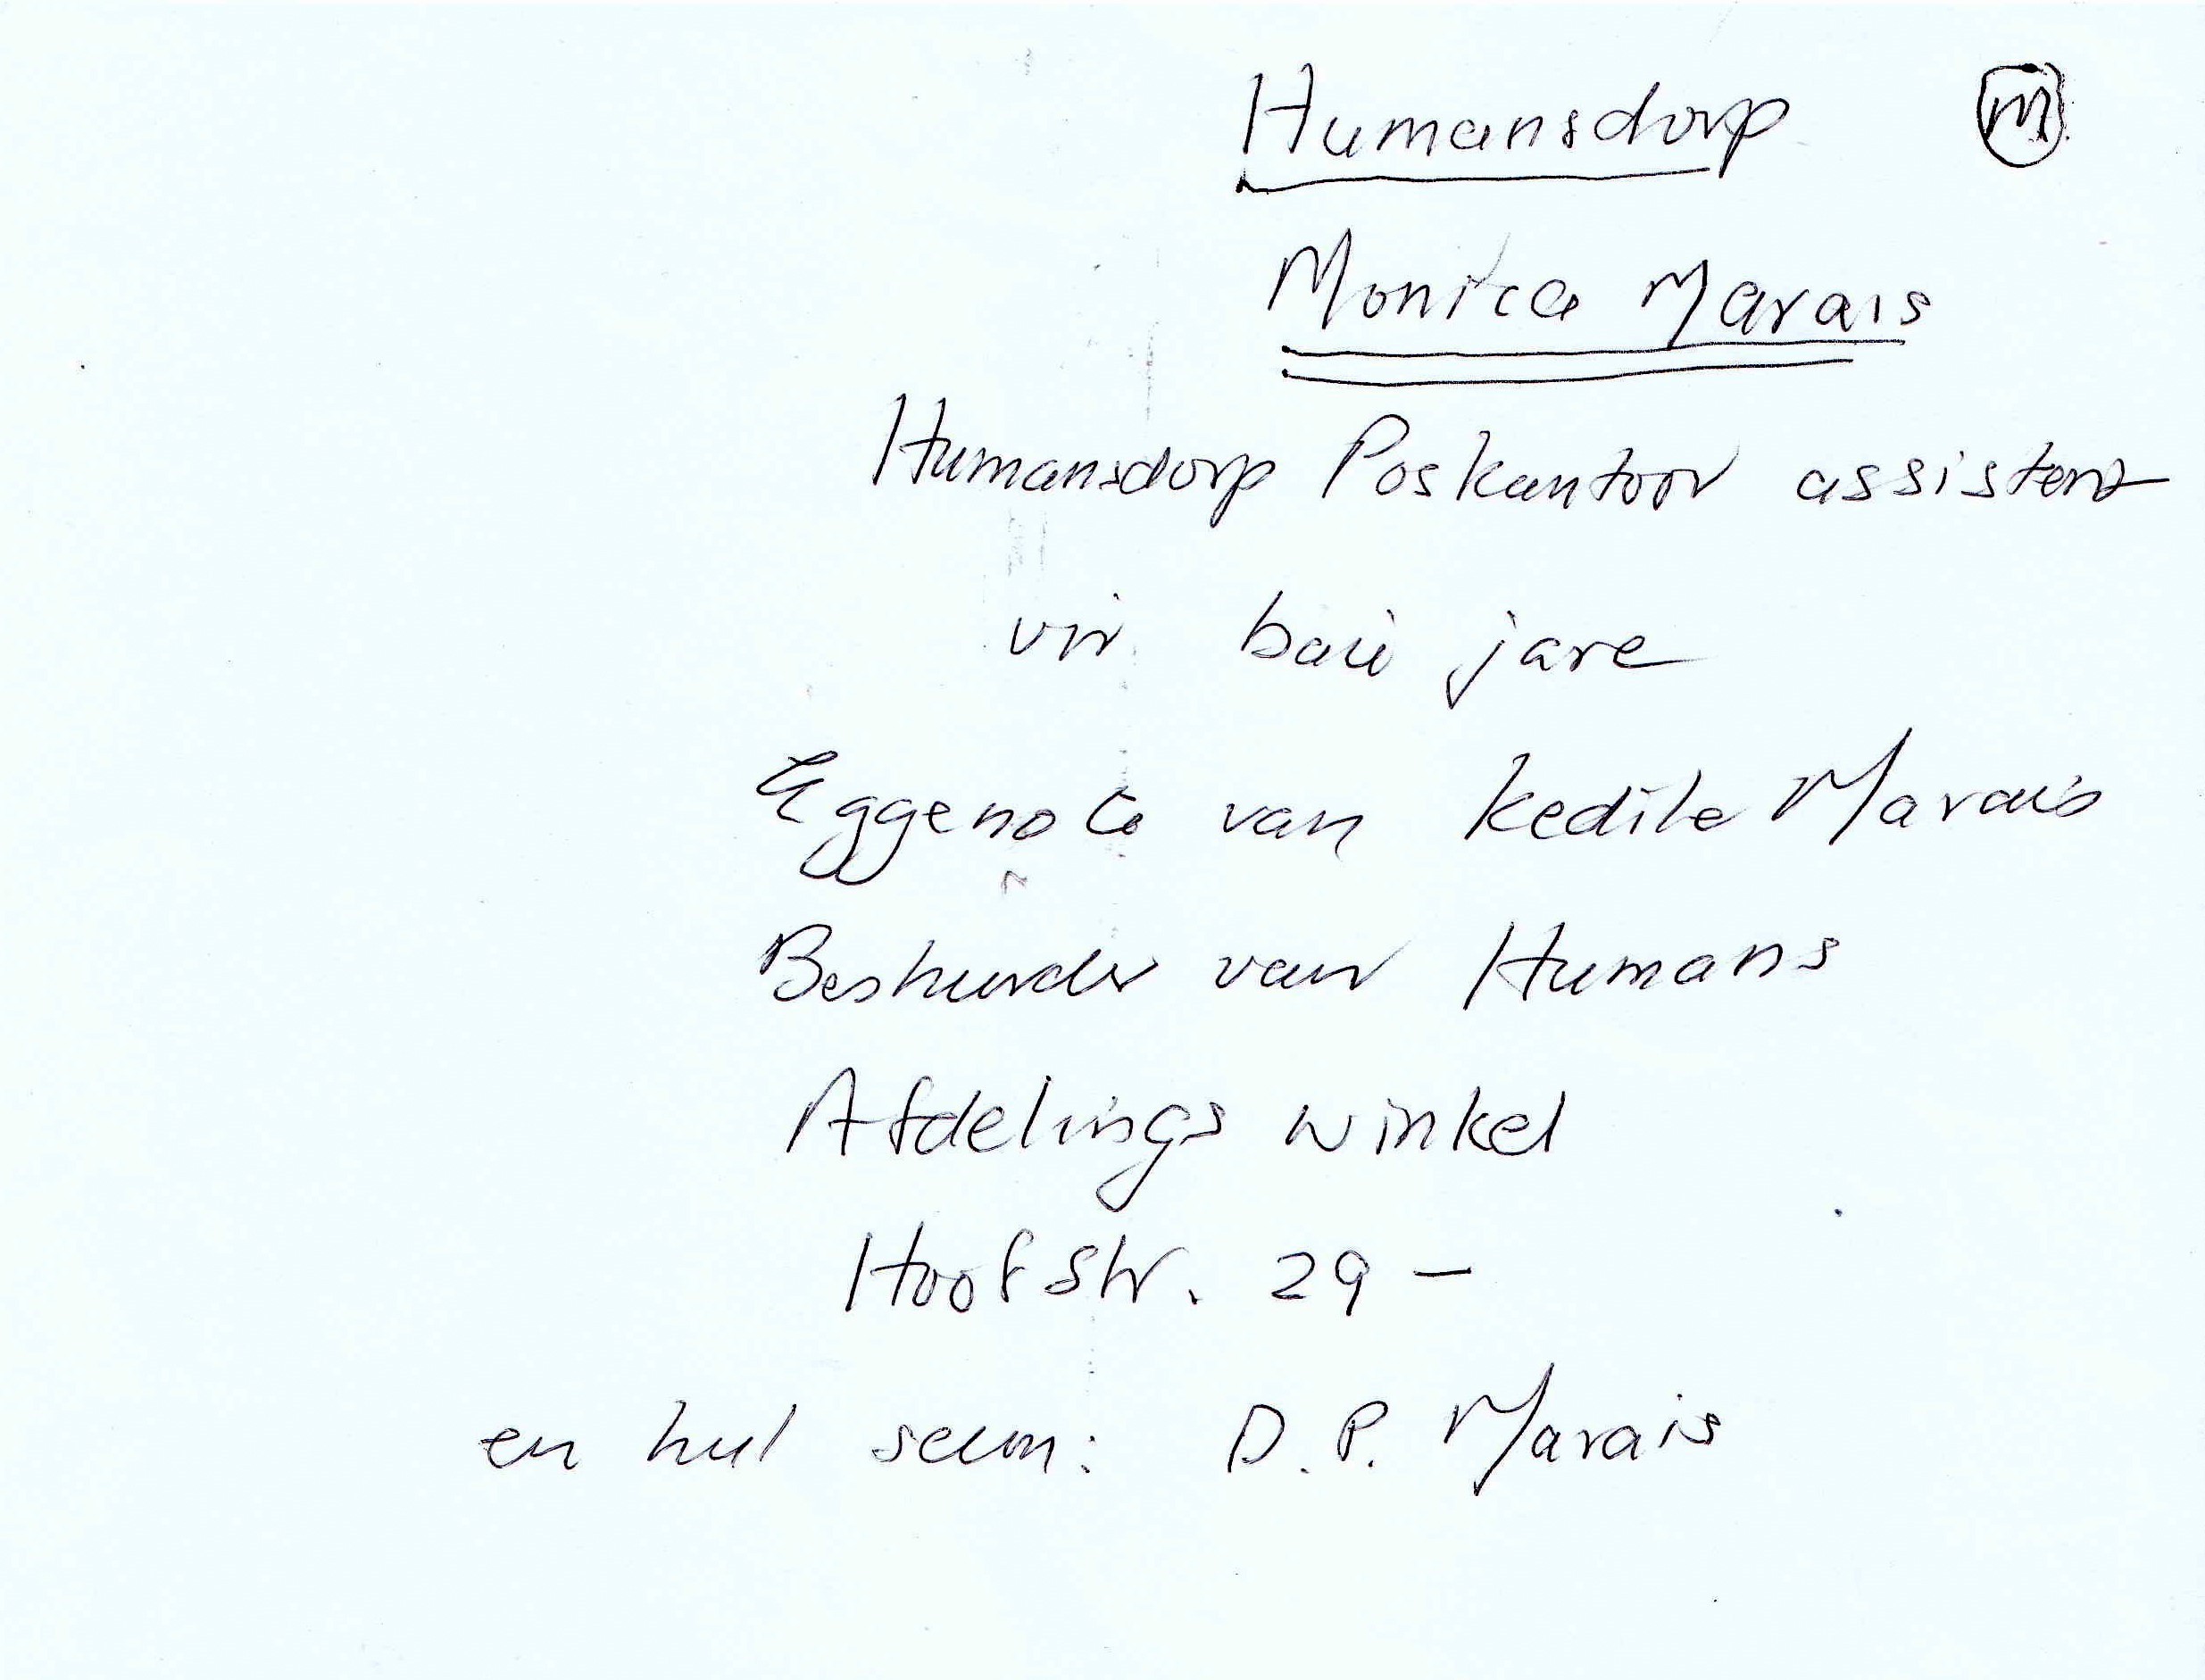 Humansdorp M
Monica Marais
Humansdorp Poskantoor assistent
vir baie jare
Eggenote van Kedile Marais
Bestuurder van Humans
Afdelings winkel
Hoofstr. 29 —
en hul seun: D.P. Marais